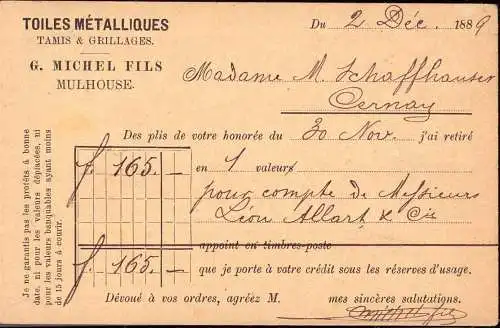 TOILES MÉTALLIQUES
TAMIS & GRILLAGES.
G. MICHEL FILS
MULHOUSE.
Du 2 Déc. 1889
Madame M. Schaffhauser
Cernay
Des plis de votre honorée du 30 Nov. j'ai retiré
f. 165. — en 1 valeurs
pour compte de Messieurs
Léon Allart & Cie
appoint en timbres-poste
f. 165. — que je porte à votre crédit sous les réserves d'usage.
Dévoué à vos ordres, agréez M. mes sincères salutations.
Je ne garantis pas les protêts à bonne
date, ni pour les valeurs déplacées, ni
pour les valeurs banquables ayant moins
de 15 jours à courir.